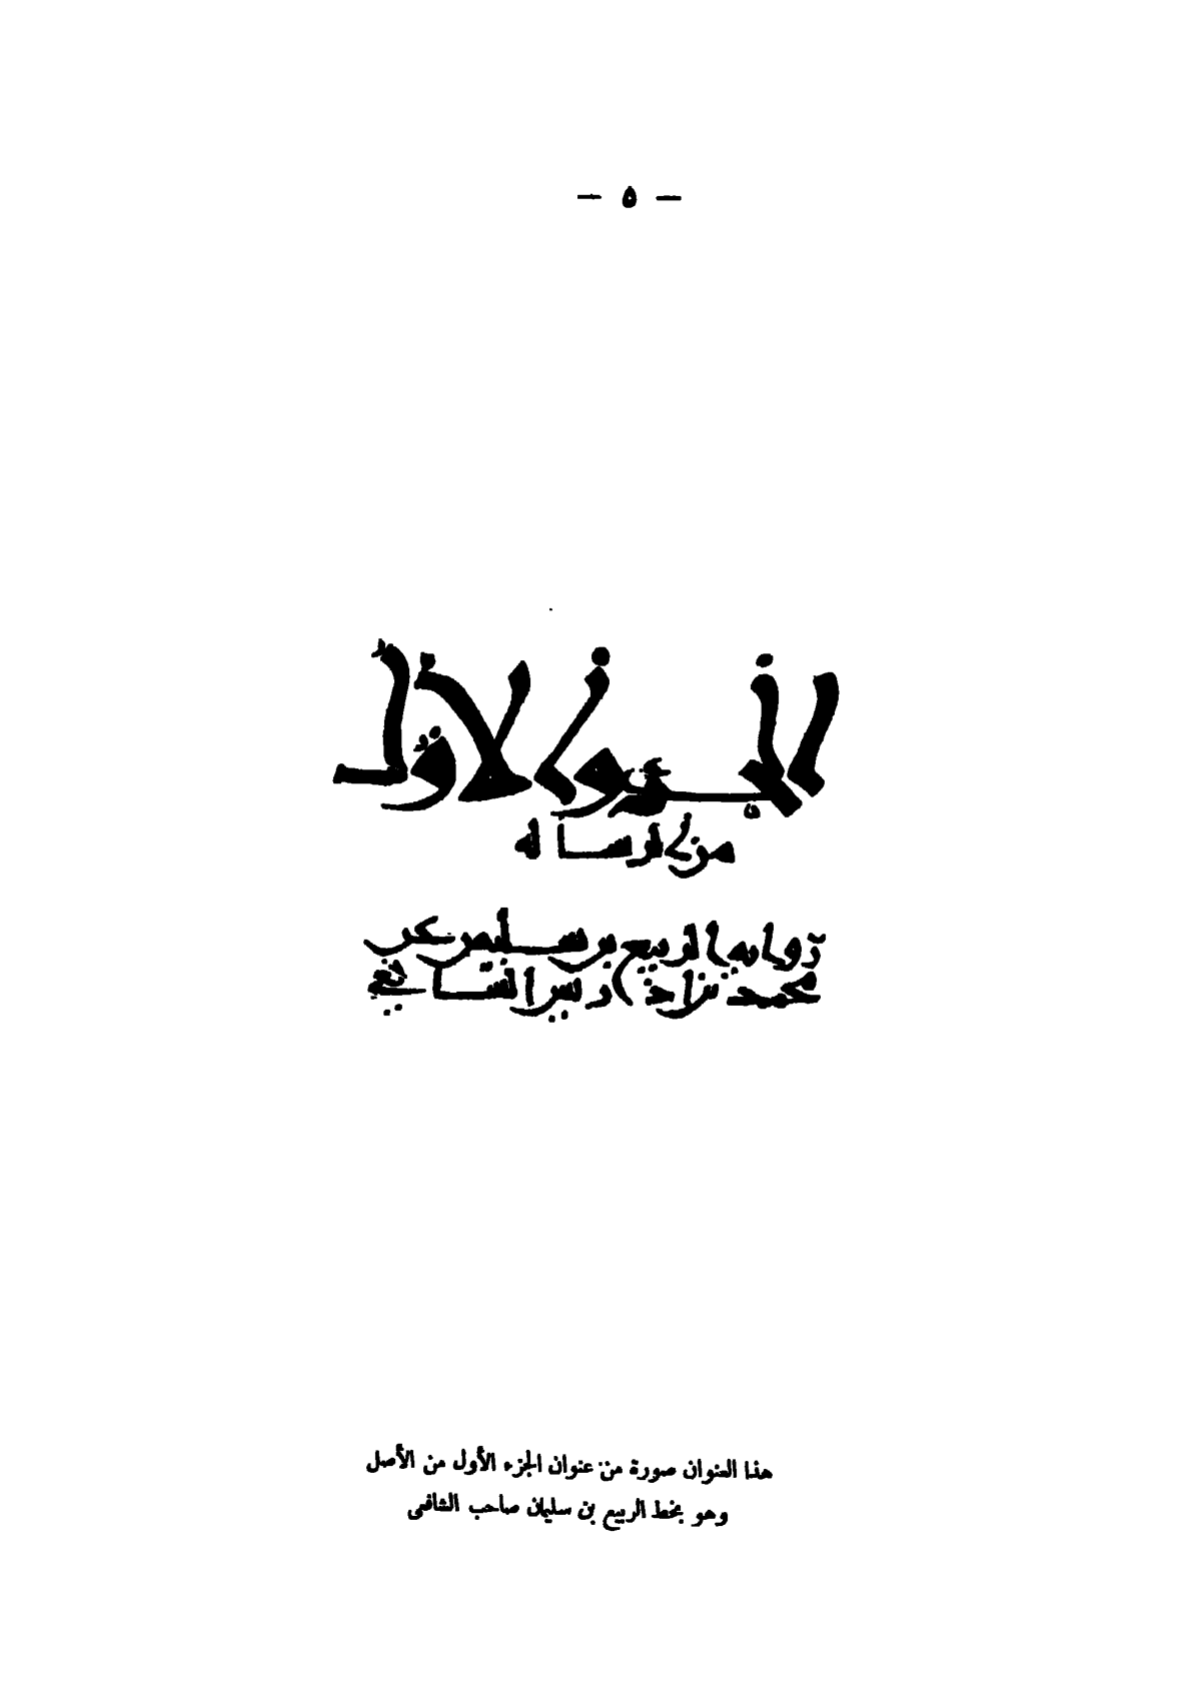 — ٥ —
الجزؤ الاول
من الرساله
روايه الربيع بن سليمن عن
محمد بن ادريس الشافعي
هذا العنوان صورة من عنوان الجزء الأول من الأصل
وهو بخط الربيع بن سليمان صاحب الشافعى